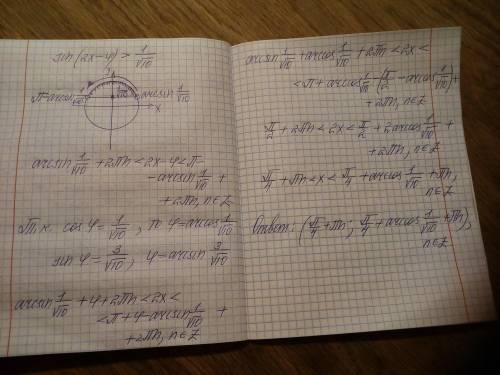 sin(2x-φ) > 1/√10
y
π-arcsin 1/√10
1/√10
arcsin 1/√10
x
arcsin 1/√10 + 2πn < 2x-φ < π-
- arcsin 1/√10 +
+ 2πn, n∈Z
Т.к. cos φ = 1/√10, то φ = arccos 1/√10
sin φ = 3/√10, φ = arcsin 3/√10
arcsin 1/√10 + φ + 2πn < 2x <
< π + φ - arcsin 1/√10 +
+ 2πn, n∈Z
arcsin 1/√10 + arccos 1/√10 + 2πn < 2x <
< π + arccos 1/√10 - (π/2 - arccos 1/√10) +
+ 2πn, n∈Z
π/2 + 2πn < 2x < π/2 + 2arccos 1/√10 +
+ 2πn, n∈Z
π/4 + πn < x < π/4 + arccos 1/√10 + πn,
n∈Z
Ответ: (π/4 + πn; π/4 + arccos 1/√10 + πn),
n∈Z